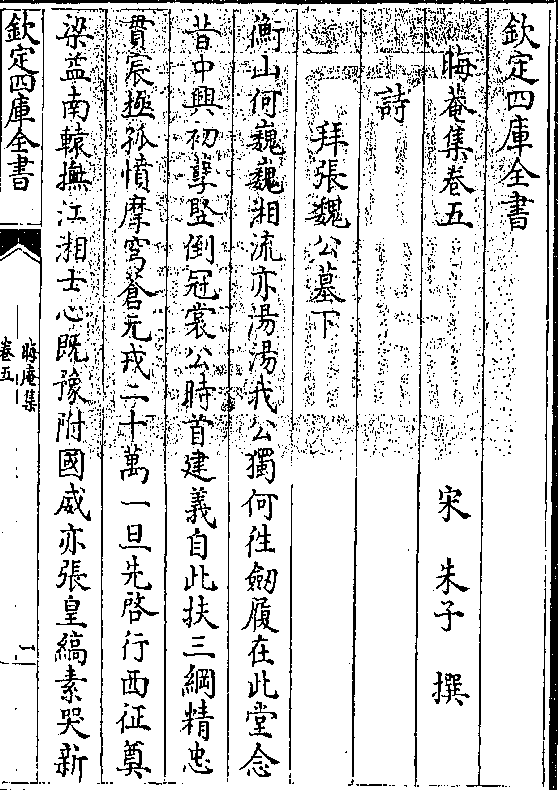 欽定四庫全書
晦菴集卷五
宋 朱子 撰
詩
拜張魏公墓下
衡山何巍巍湘流亦湯湯我公獨何往劔履在此堂念
昔中興初孽竪倒冠裳公時首建義自此扶三綱精忠
貫宸極孤憤摩穹蒼元戎二十萬一旦先啓行西征奠
梁益南轅撫江湘士心既豫附國威亦張皇縞素哭新
欽定四庫全書
晦庵集
卷五
一